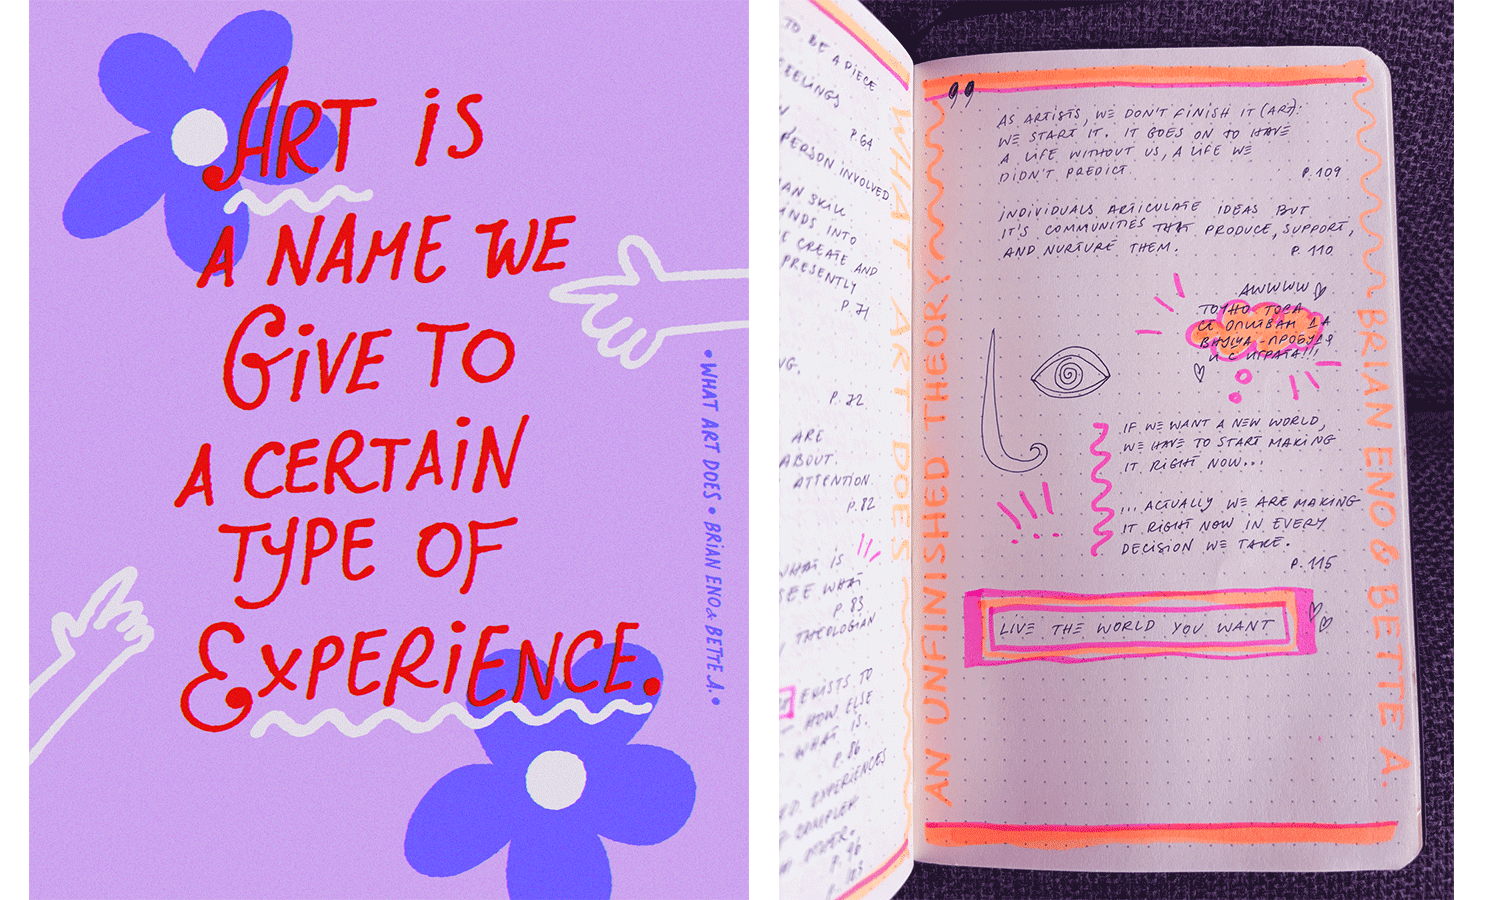 ART iS
A NAME WE
GiVE TO
A CERTAiN
TYPE OF
EXPERiENCE.
• WHAT ART DOES • BRIAN ENO & BETTE A. •
TO BE A PIECE
FEELINGS
P.64
PERSON INVOLVED
SKILL
INTO
CREATE AND
PRESENTLY
P.71
P.72
ARE
ABOUT.
ATTENTION.
P.82
WHAT IS
SEE WHAT
P.83
THEOLOGIAN
EXISTS TO
HOW ELSE
WHAT IS.
P.86
EXPERIENCES
COMPLEX
P.96
P.103
WHAT ART DOES
AN UNFINISHED THEORY
99
AS ARTISTS, WE DON'T FINISH IT (ART):
WE START IT. IT GOES ON TO HAVE
A LIFE WITHOUT US, A LIFE WE
DIDN'T PREDICT.
P.109
INDIVIDUALS ARTICULATE IDEAS BUT
IT'S COMMUNITIES THAT PRODUCE, SUPPORT,
AND NURTURE THEM.
P.110
AWWWW
ТОЧНО ТОВА
СЕ ОПИТВАМ ДА
ВНУША - ПРОБУДЯ
И С ИГРАТА!!!
IF WE WANT A NEW WORLD,
WE HAVE TO START MAKING
IT RIGHT NOW...
... ACTUALLY WE ARE MAKING
IT RIGHT NOW IN EVERY
DECISION WE TAKE.
P.115
LIVE THE WORLD YOU WANT
BRIAN ENO & BETTE A.